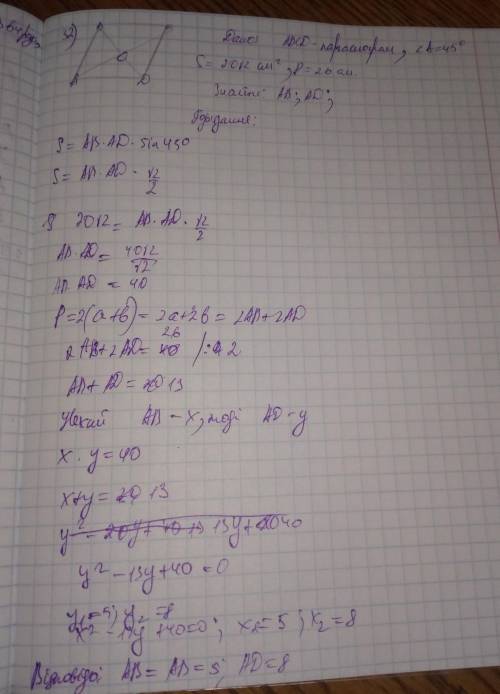 2) Дано: ABCD - паралелограм, ∠A=45°
S = 20√2 см², P=26 см.
Знайти: AB; AD;
S = AB·AD·sin 45°
S = AB·AD·√2/2
20√2 = AB·AD·√2/2
AB·AD = 40√2/√2
AB·AD = 40
P = 2(a+b) = 2a+2b = 2AB+2AD
2AB+2AD = 26 /:2
AB+AD = 13
Нехай AB - x, тоді AD - y
x·y=40
x+y = 13
y² - 13y+40 = 0
y₁=5; y₂=8
x₁=5; x₂=8
Відповідь: AB = 5; AD=8